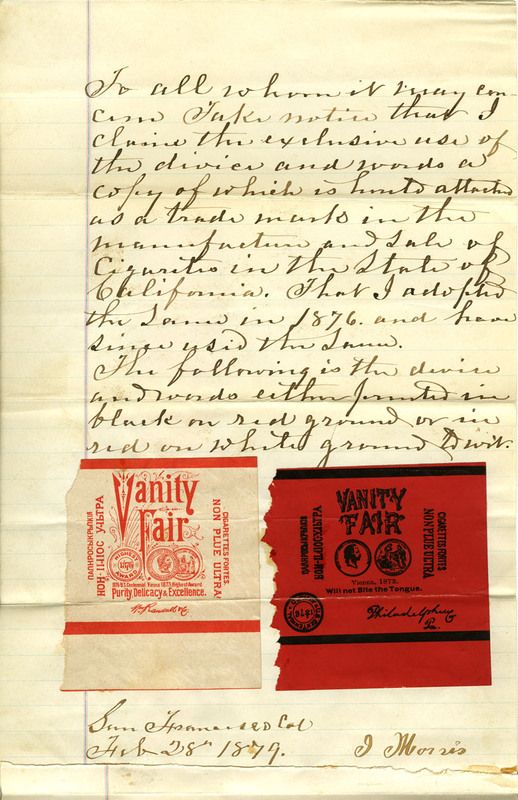 To all whom it may con-
cern Take notice that I
claim the exclusive use of
the divice and words a
copy of which is hereto attached
as a trade mark in the
manufacture and Sale of
Cigarites in the State of
California. That I adopted
the Same in 1876. and have
since used the Same.
The following is the device
and words either printed in
black on red ground or in
red on white ground to wit.
Vanity
Fair
НОН-ПЛЮС УЛЬТРА
CIGARETTES FORTES
NON PLUE ULTRA
HIGHEST
1876
AWARD
Purity, Delicacy & Excellence.
VANITY
FAIR
CIGARETTES FORTES
NON PLUE ULTRA
Vienna, 1873.
Will not Bite the Tongue.
1876
Philadelphia
San Francisco Cal
Feb 28th 1879.
I Morris